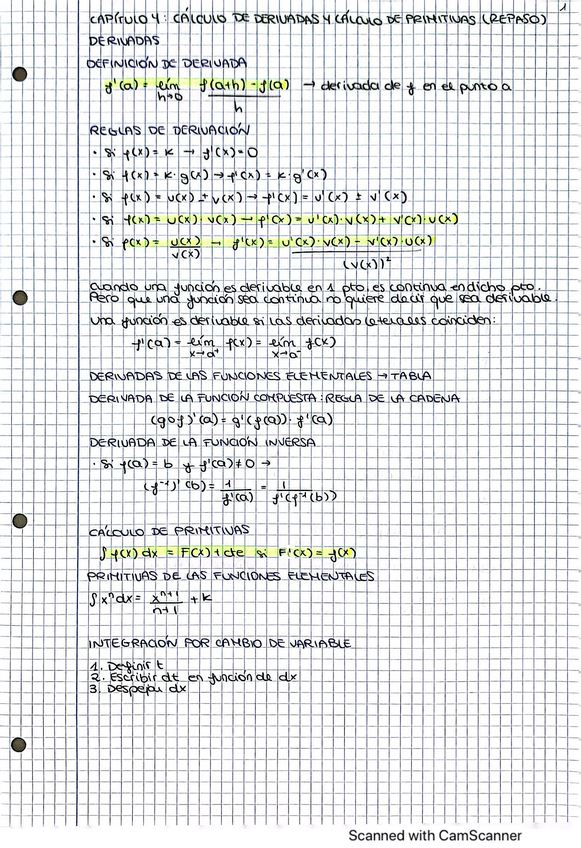 1
CAPÍTULO 4: CÁLCULO DE DERIVADAS Y CÁLCULO DE PRIMITIVAS (REPASO)
DERIVADAS
DEFINICIÓN DE DERIVADA
f'(a) = lím h→0 (f(a+h) - f(a)) / h → derivada de f en el punto a
REGLAS DE DERIVACIÓN
· Si f(x) = k → f'(x) = 0
· Si f(x) = k · g(x) → f'(x) = k · g'(x)
· Si f(x) = u(x) ± v(x) → f'(x) = u'(x) ± v'(x)
· Si f(x) = u(x) · v(x) → f'(x) = u'(x) · v(x) + v'(x) · u(x)
· Si f(x) = u(x) / v(x) → f'(x) = (u'(x) · v(x) - v'(x) · u(x)) / (v(x))²
Cuando una función es derivable en 1 pto, es continua en dicho pto.
Pero que una función sea continua no quiere decir que sea derivable.
Una función es derivable si las derivadas laterales coinciden:
f'(a) = lím x→a⁺ f(x) = lím x→a⁻ f(x)
DERIVADAS DE LAS FUNCIONES ELEMENTALES → TABLA
DERIVADA DE LA FUNCIÓN COMPUESTA: REGLA DE LA CADENA
(g o f)'(a) = g'(f(a)) · f'(a)
DERIVADA DE LA FUNCIÓN INVERSA
· Si f(a) = b y f'(a) ≠ 0 →
(f⁻¹)'(b) = 1 / f'(a) = 1 / f'(f⁻¹(b))
CÁLCULO DE PRIMITIVAS
∫f(x) dx = F(x) + cte si F'(x) = f(x)
PRIMITIVAS DE LAS FUNCIONES ELEMENTALES
∫xⁿdx = xⁿ⁺¹ / n+1 + k
INTEGRACIÓN POR CAMBIO DE VARIABLE
1. Definir t
2. Escribir dt en función de dx
3. Despejar dx
Scanned with CamScanner